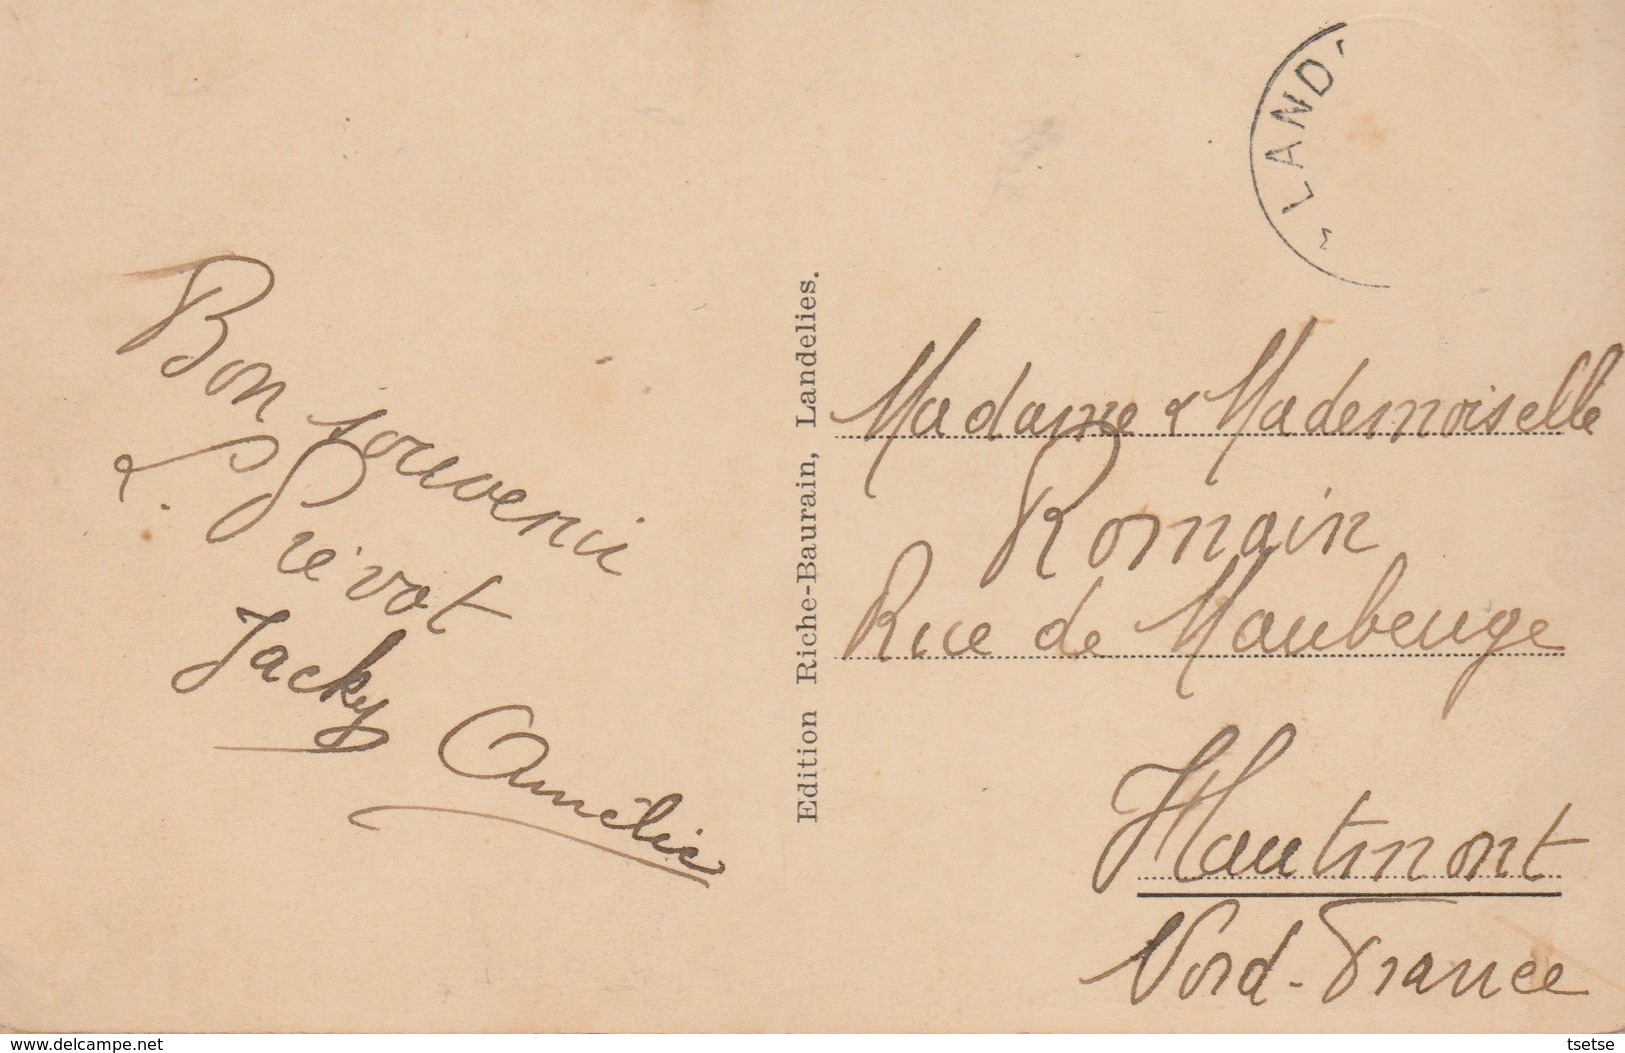 Bon souvenir
L. Prévot
Jacky
Amélie
Edition Riche-Baurain, Landelies.
LAND
Madame & Mademoiselle
Romain
Rue de Maubeuge
Hautmont
Nord-France
www.delcampe.net
tsetse